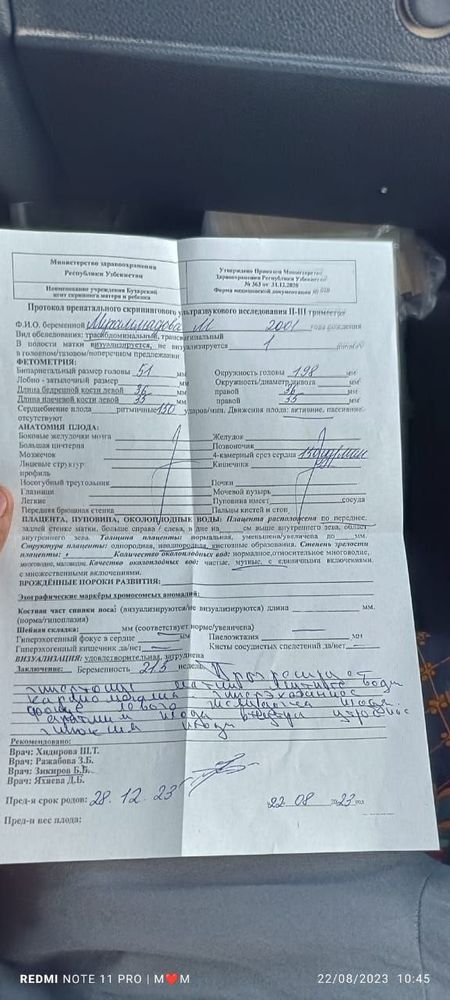 Министерство здравоохранения
Республики Узбекистан
Наименование учреждения Бухарский
цент скрининга матери и ребенка
Утверждено Приказом Министерство
Здравоохранения Республики Узбекистан
№ 363 от 31.12.2020
Форма медицинской документации №
Протокол пренатального скринингового ультразвукового исследования II-III триместра
Ф.И.О. беременной М 2001 года рождения
Вид обследования: трасабдоминальный, трансвагинальный
В полости матки визуализируется, не визуализируется 1
в головном/тазовом/поперечном предлежании
ФЕТОМЕТРИЯ:
Бипариетальный размер головы 51 мм Окружность головы 198 мм
Лобно - затылочный размер мм Окружность/диаметр живота мм
Длина бедренной кости левой 36 мм правой 36 мм
Длина плечевой кости левой 33 мм правой 33 мм
Сердцебиение плода ритмичные 150 ударов/мин. Движения плода: активние, пассивние,
отсутствуют
АНАТОМИЯ ПЛОДА:
Боковые желудочки мозга Желудок
Большая цистерна Позвоночник
Мозжечок 4-камерный срез сердца
Лицевые структур Кишечника
профиль
Носогубный треугольник Почки
Глазницы Мочевой пузырь
Легкие Пуповина имеет сосуда
Передняя брюшная стенка Пальцы кистей и стоп
ПЛАЦЕНТА, ПУПОВИНА, ОКОЛОПЛОДНЫЕ ВОДЫ: Плацента расположена по переднее,
задней стенке матки, больше справа / слева, в дне на см выше внутреннего зева, област
внутреннего зева. Толщина плаценты: нормальная, уменьшена/увеличена до мм.
Структура плаценты: однородная, неоднородная, кистозные образования. Степень зрелости
плаценты: Количество околоплодных вод: нормальное, относительное многоводие,
многоводие, маловодие. Качество околоплодных вод: чистые, мутные, с единичными включениями,
с множественными включениями.
ВРОЖДЁННЫЕ ПОРОКИ РАЗВИТИЯ:
Эхографические маркёры хромосомных аномалий:
Костная част спинки носа: (визуализируются/не визуализируются) длина мм.
(норма/гипоплазия)
Шейная складка: мм (соответствует норме/увеличена)
Гиперэхогенный фокус в сердце мм Пиелоэктазия мм
Гиперэхогенный кишечник да/нет Кисты сосудистых сплетений да/нет
ВИЗУАЛИЗАЦИЯ: удовлетворительная, затруднена
Заключение: Беременность 21.5 недель.
матки воды
левого желудочка
плода
Рекомендовано:
Врач: Хидирова Ш.Т.
Врач: Ражабова З.Б.
Врач: Зикиров Б.Б.
Врач: Яхиева Д.Б.
Пред-я срок родов: 28.12.23 22 08 2023 год
Пред-и вес плода:
REDMI NOTE 11 PRO | M❤️M
22/08/2023 10:45